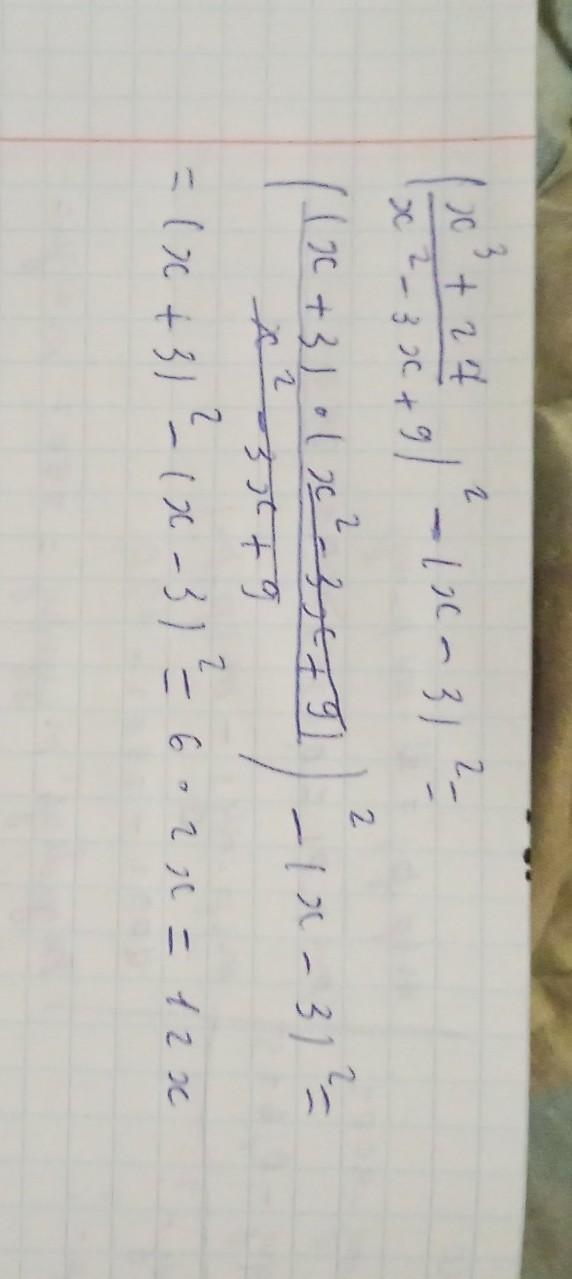 (x³ + 27 / x² - 3x + 9)² - (x - 3)² =
((x + 3) · (x² - 3x + 9) / x² - 3x + 9)² - (x - 3)² =
= (x + 3)² - (x - 3)² = 6 · 2x = 12x